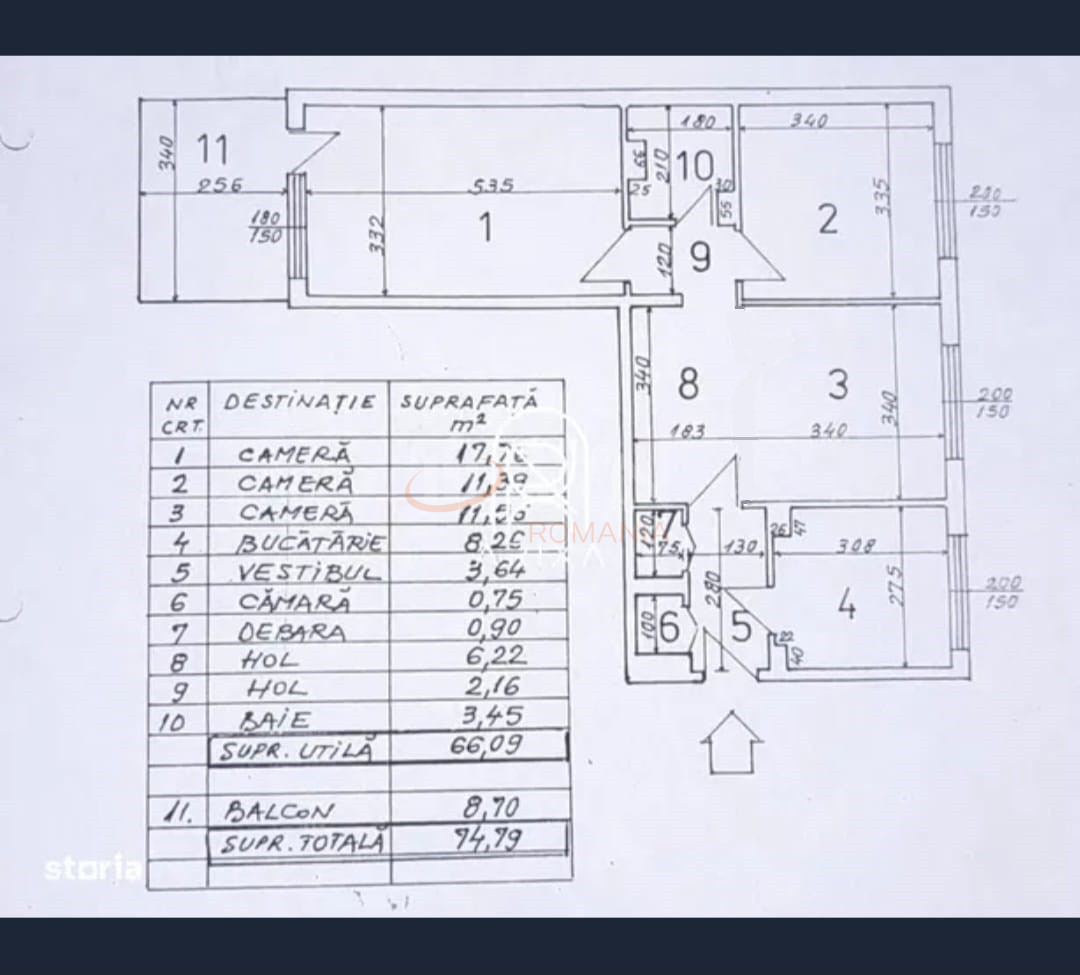 340
11
256
180
150
535
332
1
180
66
210
10
25
30
55
120
9
340
335
2
200
150
340
8
3
340
183
340
200
150
NR CRT.
DESTINAȚIE
SUPRAFAȚĂ m²
1 CAMERĂ
2 CAMERĂ 11,39
3 CAMERĂ
4 BUCĂTĂRIE
5 VESTIBUL 3,64
6 CĂMARĂ 0,75
7 DEBARA 0,90
8 HOL 6,22
9 HOL 2,16
10 BAIE 3,45
SUPR. UTILĂ 66,09
11. BALCON 8,70
SUPR. TOTALĂ 74,79
ROMANIA
120
7
75
130
280
26
47
308
275
4
100
6
5
22
40
200
150
storia